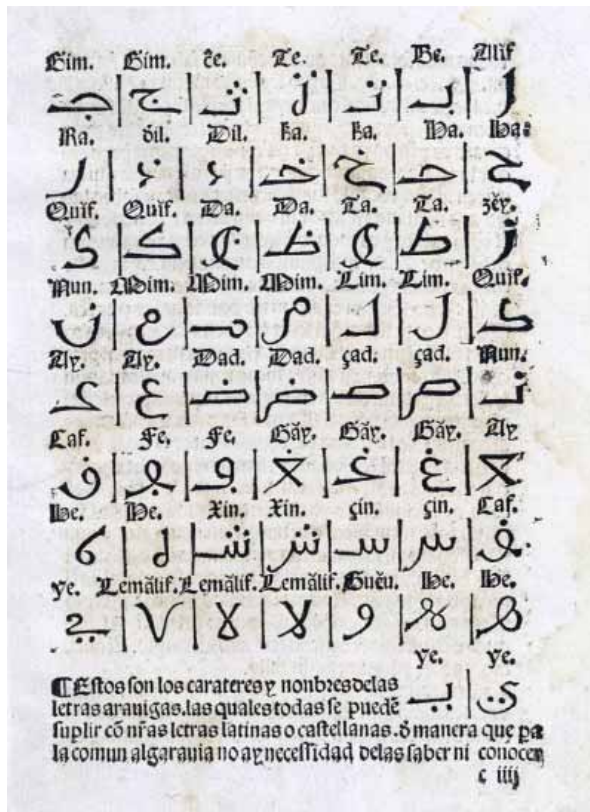 Gim. Gim. c̃e. Te. Te. Be. Alif
ا ب ت ت ث ج ج
Ra. ðil. Dil. ka. ka. Ha. Ha.
ح ح خ خ د ذ ر
Quif. Quif. Da. Da. Ta. Ta. zěy.
ز ط ط ظ ظ ك ك
Nun. Mim. Mim. Mim. Lim. Lim. Quif.
ك ل ل م م م ن
Ay. Ay. Dad. Dad. çad. çad. Nun.
ن ص ص ض ض ع ع
Caf. Fe. Fe. Gãy. Gãy. Gãy. Ay
ع غ غ غ ڢ ڢ ڧ
He. He. Xin. Xin. çin. çin. Caf.
ڧ س س ش ش ه ه
ye. Lemãlif. Lemãlif. Lemãlif. Guěu. He. He.
ه ه و لا لا لا ي
ye. ye.
ي ي
¶Estos son los carateres y nonbres delas
letras arauigas. las quales todas se puedẽ
suplir cõ nr̃as letras latinas o castellanas. ð manera que pa
la comun algarauia no ay necessidad delas saber ni conocer
c iiij